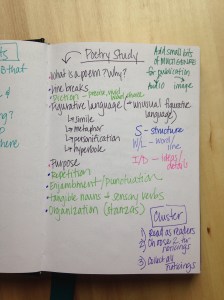 Poetry Study
What is a poem? Why?
Line breaks
Diction -
Figurative language (unusual figurative
language)
simile
metaphor
personification
hyperbole
Purpose
Repetition
Enjambment/Punctuation
Tangible nouns + sensory verbs
Organization (stanzas)
Add small bits
of
for publication
Audio image
S - structure
W/L - word/
line
I/D - ideas/
details
Cluster
1) Read as readers
2) Choose 2 for
noticings
3) Collect all
noticings
ts
B that
to
here